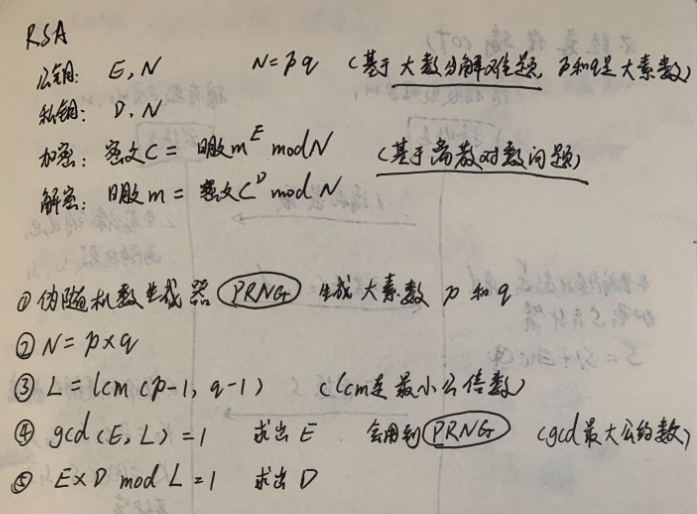 RSA
公钥: E, N N=pq (基于大数分解难题, p和q是大素数)
私钥: D, N
加密: 密文C = 明文m^E mod N (基于离散对数问题)
解密: 明文m = 密文C^D mod N
① 伪随机数生成器 PRNG 生成大素数 p 和 q
② N = p×q
③ L = lcm (p-1, q-1) (lcm是最小公倍数)
④ gcd (E, L) = 1 求出 E 会用到 PRNG (gcd最大公约数)
⑤ E×D mod L = 1 求出 D